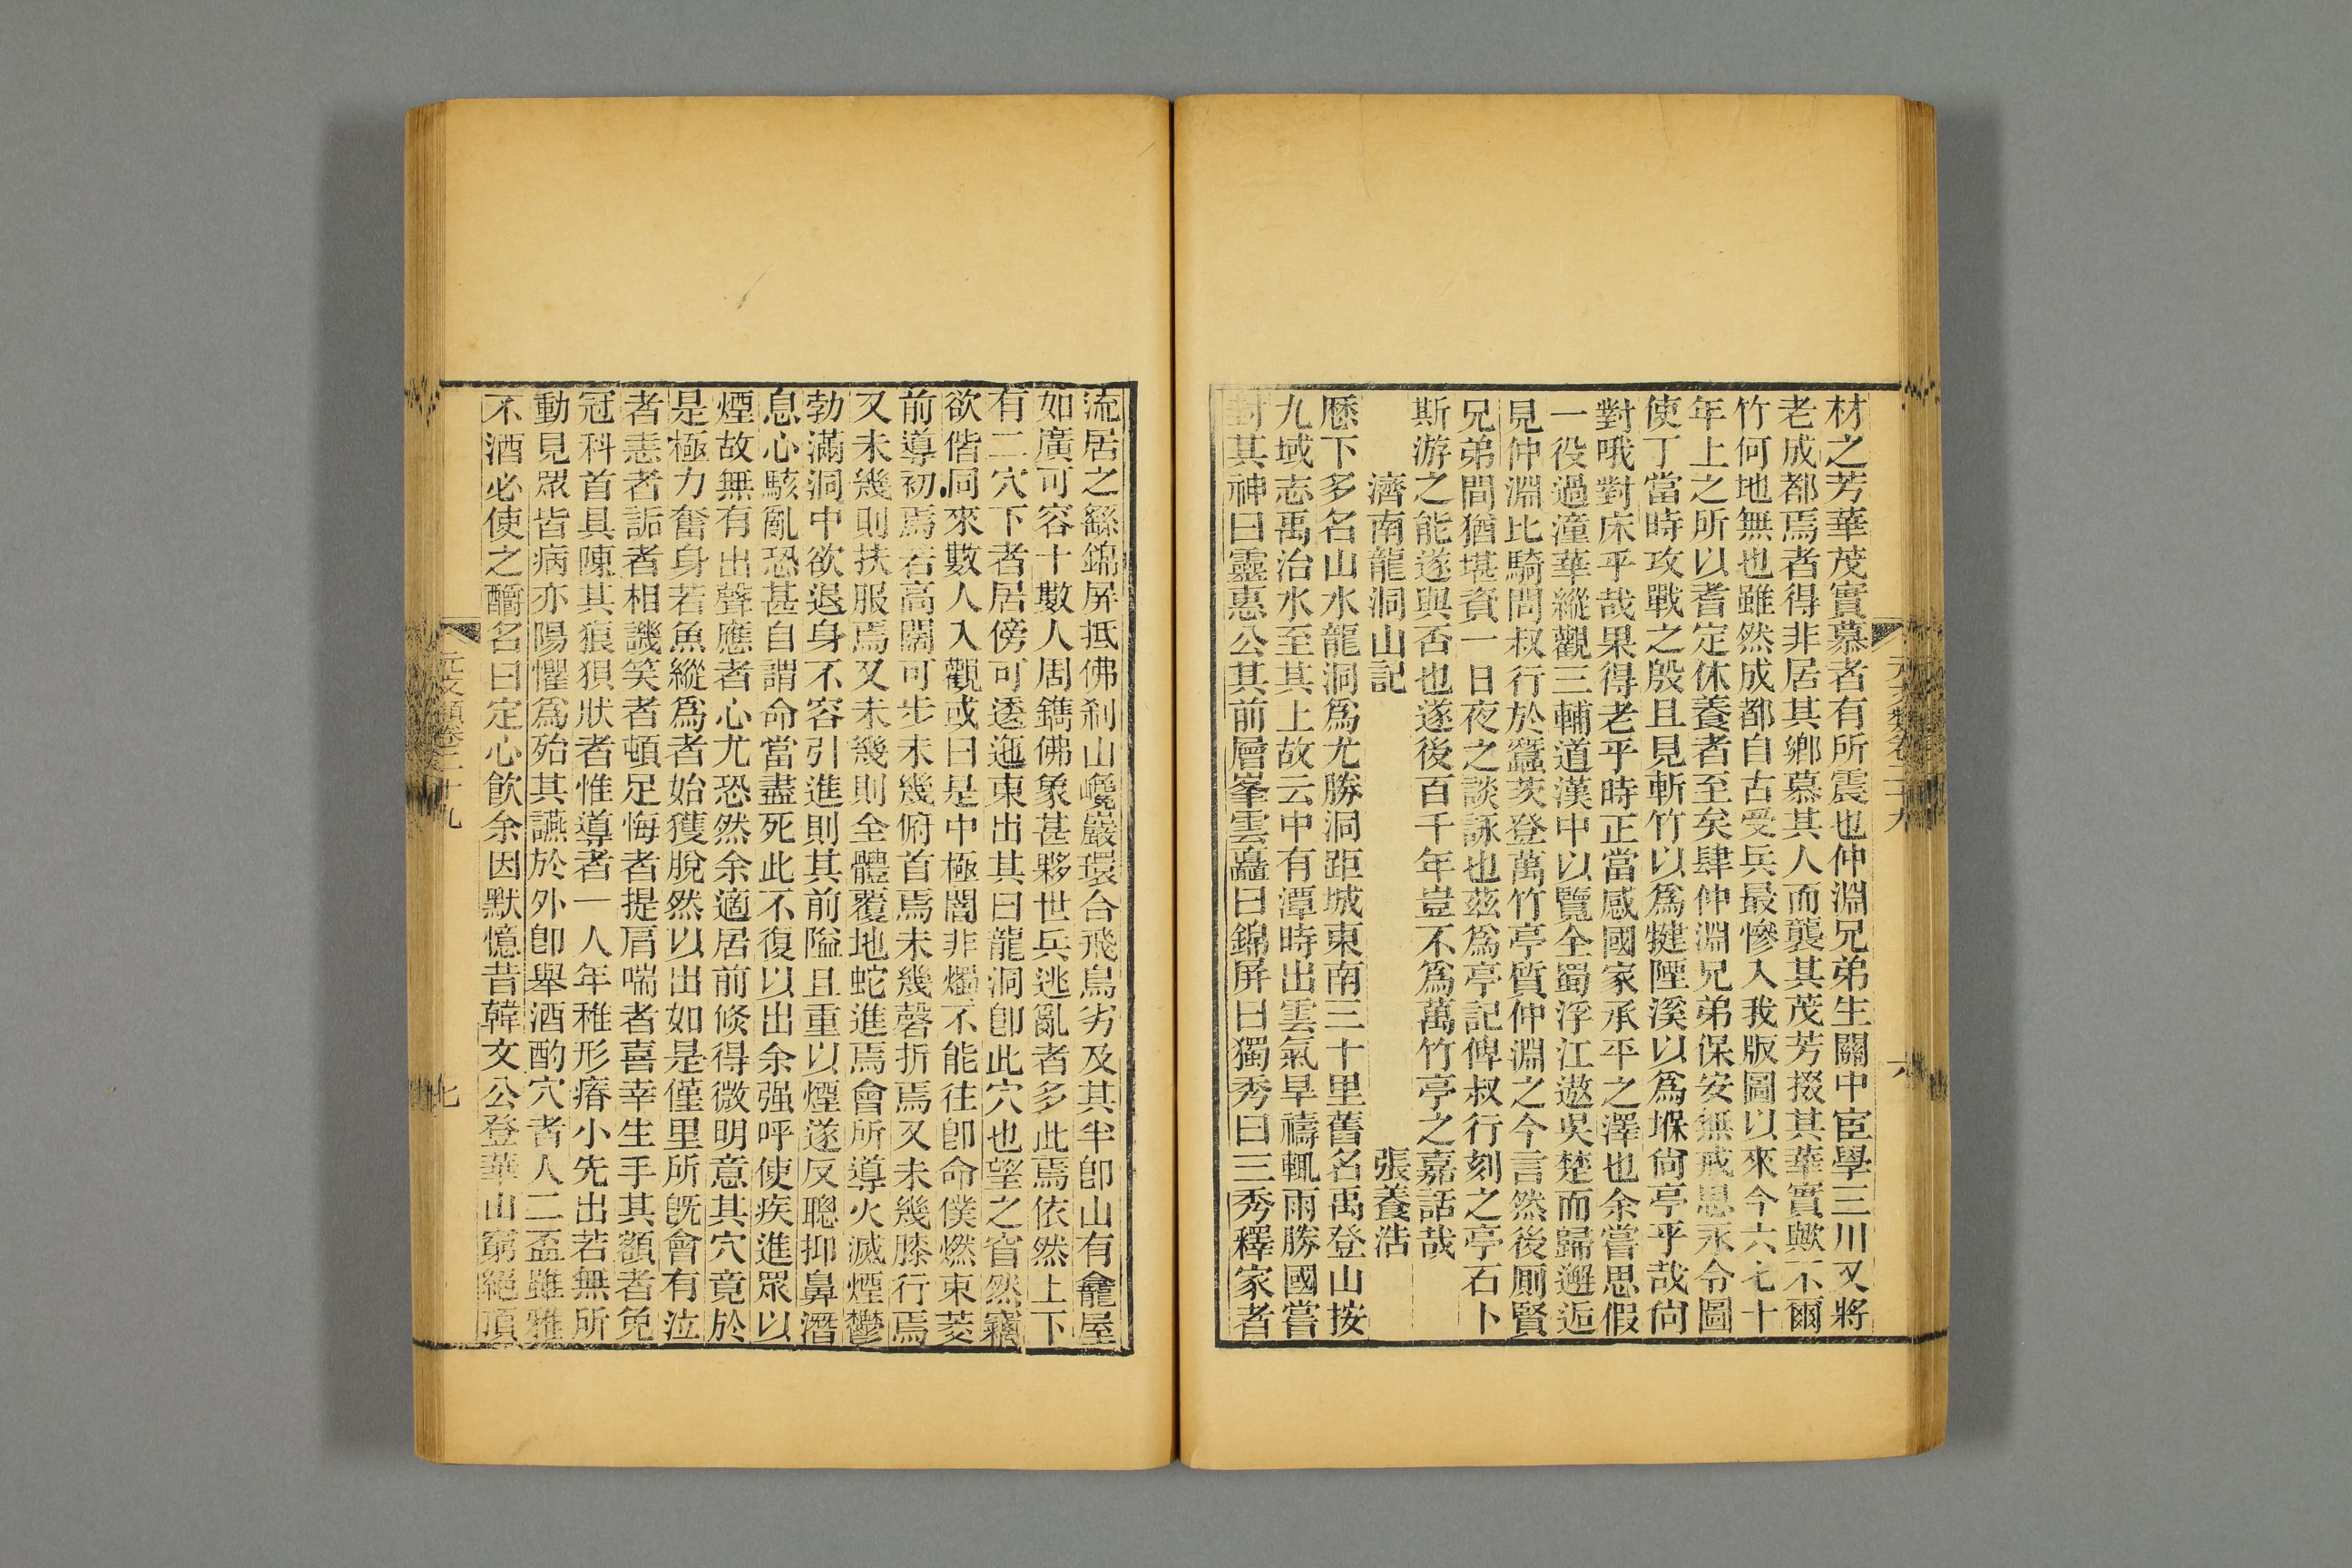 材之芳華茂實慕者有所震也仲淵兄弟生關中宦學三川又將
老成都焉者得非居其鄉慕其人而襲其茂芳掇其華實歟不爾
竹何地無也雖然成都自古受兵最慘入我版圖以來今六七十
年上之所以耆定休養者至矣肆仲淵兄弟保安無戚思永令圖
使丁當時攻戰之殷且見斬竹以為揵陻溪以為堢尙亭乎哉尙
對哦對床乎哉果得老乎時正當感國家承平之澤也余嘗思假
一役過潼華縱觀三輔道漢中以覽全蜀浮江遨吳楚而歸邂逅
見仲淵比騎問叔行於蠶茨登萬竹亭質仲淵之今言然後厠賢
兄弟間猶堪資一日夜之談詠也茲為亭記俾叔行刻之亭石卜
斯游之能遂與否也遂後百千年豈不為萬竹亭之嘉話哉
濟南龍洞山記 張養浩
歷下多名山水龍洞為尤勝洞距城東南三十里舊名禹登山按
九域志禹治水至其上故云中有潭時出雲氣旱禱輒雨勝國嘗
封其神曰靈惠公其前層峯雲矗曰錦屏曰獨秀曰三秀釋家者
元文類卷二十九
六
流居之繇錦屏抵佛刹山巉巖環合飛鳥劣及其半卽山有龕屋
如廣可容十數人周鐫佛象甚夥世兵逃亂者多此焉依然上下
有二穴下者居傍可逶迤東出其曰龍洞卽此穴也望之窅然竊
欲偕同來數人入觀或曰是中極闇非燭不能往卽命僕燃東荾
前導初焉若高闊可步未幾俯首焉未幾磬折焉又未幾膝行焉
又未幾則扶服焉又未幾則全體覆地蛇進焉會所導火滅煙鬱
勃滿洞中欲退身不容引進則其前隘且重以煙遂反聰抑鼻潛
息心駭亂恐甚自謂命當盡死此不復以出余强呼使疾進眾以
煙故無有出聲應者心尤恐然余適居前倏得微明意其穴竟於
是極力奮身若魚縱為者始獲脫然以出如是僅里所既會有泣
者恚者詬者相譏笑者頓足悔者提肩喘者喜幸生手其額者免
冠科首具陳其狼狽狀者惟導者一人年稚形瘠小先出若無所
動見眾皆病亦陽懼為殆其讌於外卽舉酒酌穴者人二盃雖雅
不酒必使之釂名曰定心飲余因默憶昔韓文公登華山窮絕頂
元文類卷二十九
七